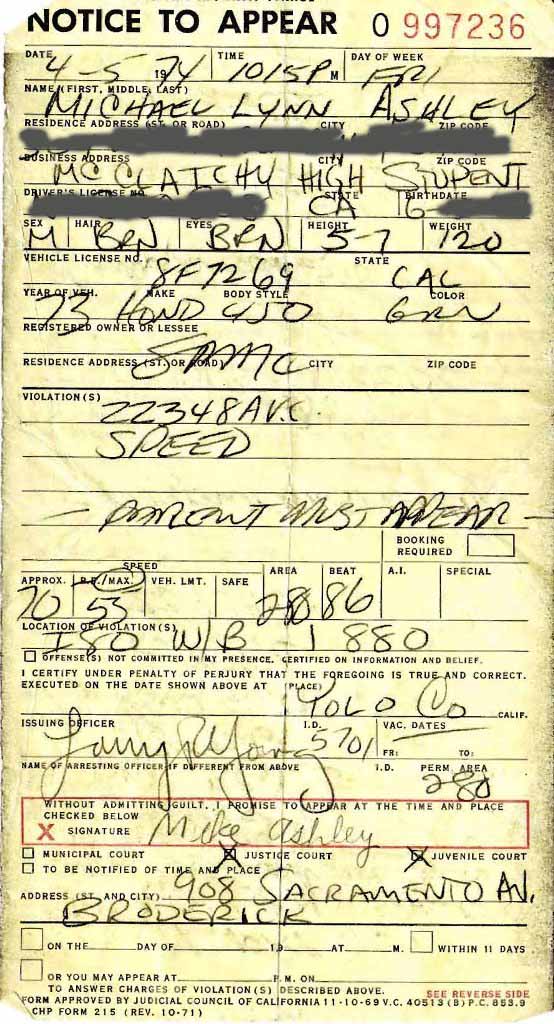 NOTICE TO APPEAR 0 997236
DATE TIME DAY OF WEEK
4-5 1974 1015P M FRI
NAME (FIRST, MIDDLE, LAST)
MICHAEL LYNN ASHLEY
RESIDENCE ADDRESS (ST. OR ROAD) CITY ZIP CODE
BUSINESS ADDRESS CITY ZIP CODE
MC CLATCHY HIGH STUDENT
DRIVER'S LICENSE NO. STATE BIRTHDATE
CA 6-
SEX HAIR EYES HEIGHT WEIGHT
M BRN BRN 5-7 120
VEHICLE LICENSE NO. STATE
8F7269 CAL
YEAR OF VEH. MAKE BODY STYLE COLOR
73 HOND 450 GRN
REGISTERED OWNER OR LESSEE
SAME
RESIDENCE ADDRESS (ST. OR ROAD) CITY ZIP CODE
VIOLATION(S)
22348A V.C.
SPEED
- PARENT MUST APPEAR -
BOOKING REQUIRED
SPEED AREA BEAT A.I. SPECIAL
APPROX. P.F./MAX. VEH. LMT. SAFE
70 55 280 86
LOCATION OF VIOLATION(S)
I80 W/B I 880
OFFENSE(S) NOT COMMITTED IN MY PRESENCE. CERTIFIED ON INFORMATION AND BELIEF.
I CERTIFY UNDER PENALTY OF PERJURY THAT THE FOREGOING IS TRUE AND CORRECT.
EXECUTED ON THE DATE SHOWN ABOVE AT (PLACE)
YOLO CO CALIF.
ISSUING OFFICER I.D. VAC. DATES
Larry R Young 5701 FR: TO:
NAME OF ARRESTING OFFICER IF DIFFERENT FROM ABOVE I.D. PERM. AREA
280
WITHOUT ADMITTING GUILT, I PROMISE TO APPEAR AT THE TIME AND PLACE
CHECKED BELOW
X SIGNATURE Mike Ashley
MUNICIPAL COURT X JUSTICE COURT X JUVENILE COURT
TO BE NOTIFIED OF TIME AND PLACE
ADDRESS (ST. AND CITY) 908 SACRAMENTO AV.
BRODERICK
ON THE DAY OF 19 AT M. WITHIN 11 DAYS
OR YOU MAY APPEAR AT P.M. ON
TO ANSWER CHARGES OF VIOLATION(S) DESCRIBED ABOVE. SEE REVERSE SIDE
FORM APPROVED BY JUDICIAL COUNCIL OF CALIFORNIA 11-10-69 V.C. 40513 (B) P.C. 853.9
CHP FORM 215 (REV. 10-71)